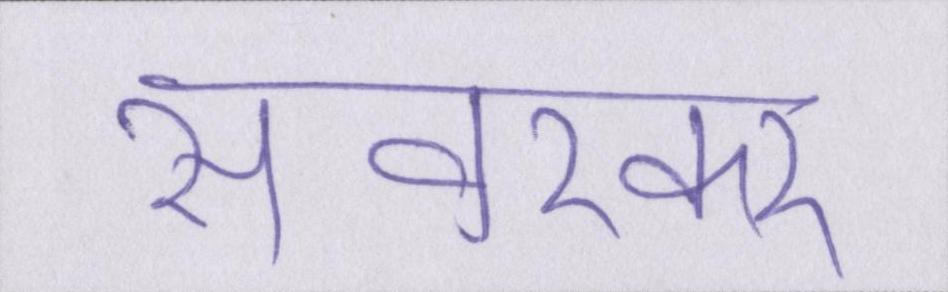 सवरकर